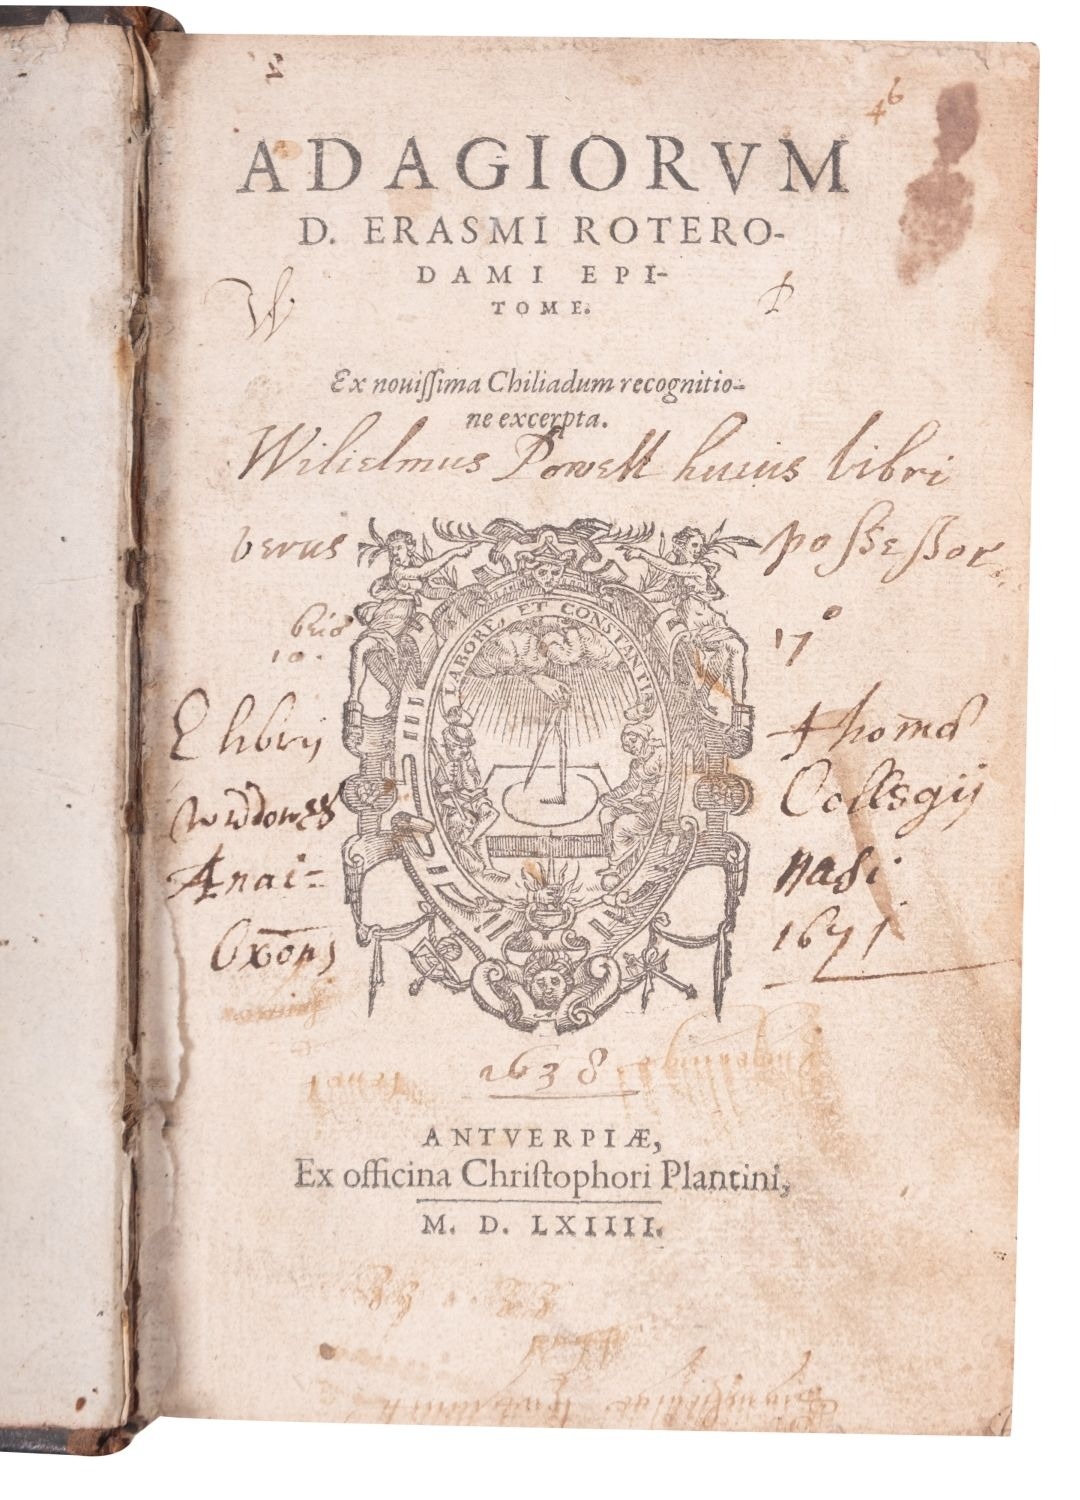 2
46
ADAGIORVM
D. ERASMI ROTERO-
DAMI EPI-
TOME.
W P
Ex nouiſſima Chiliadum recognitio-
ne excerpta.
Wilielmus Powell huius libri
verus poſſeſſor
LABORE, ET CONSTANTIA
10. 17°
E librij Thomæ
Widdowes Collegij
Ænai= naſi
Oxon 1671
1638
ANTVERPIÆ,
Ex officina Chriſtophori Plantini,
M. D. LXIIII.